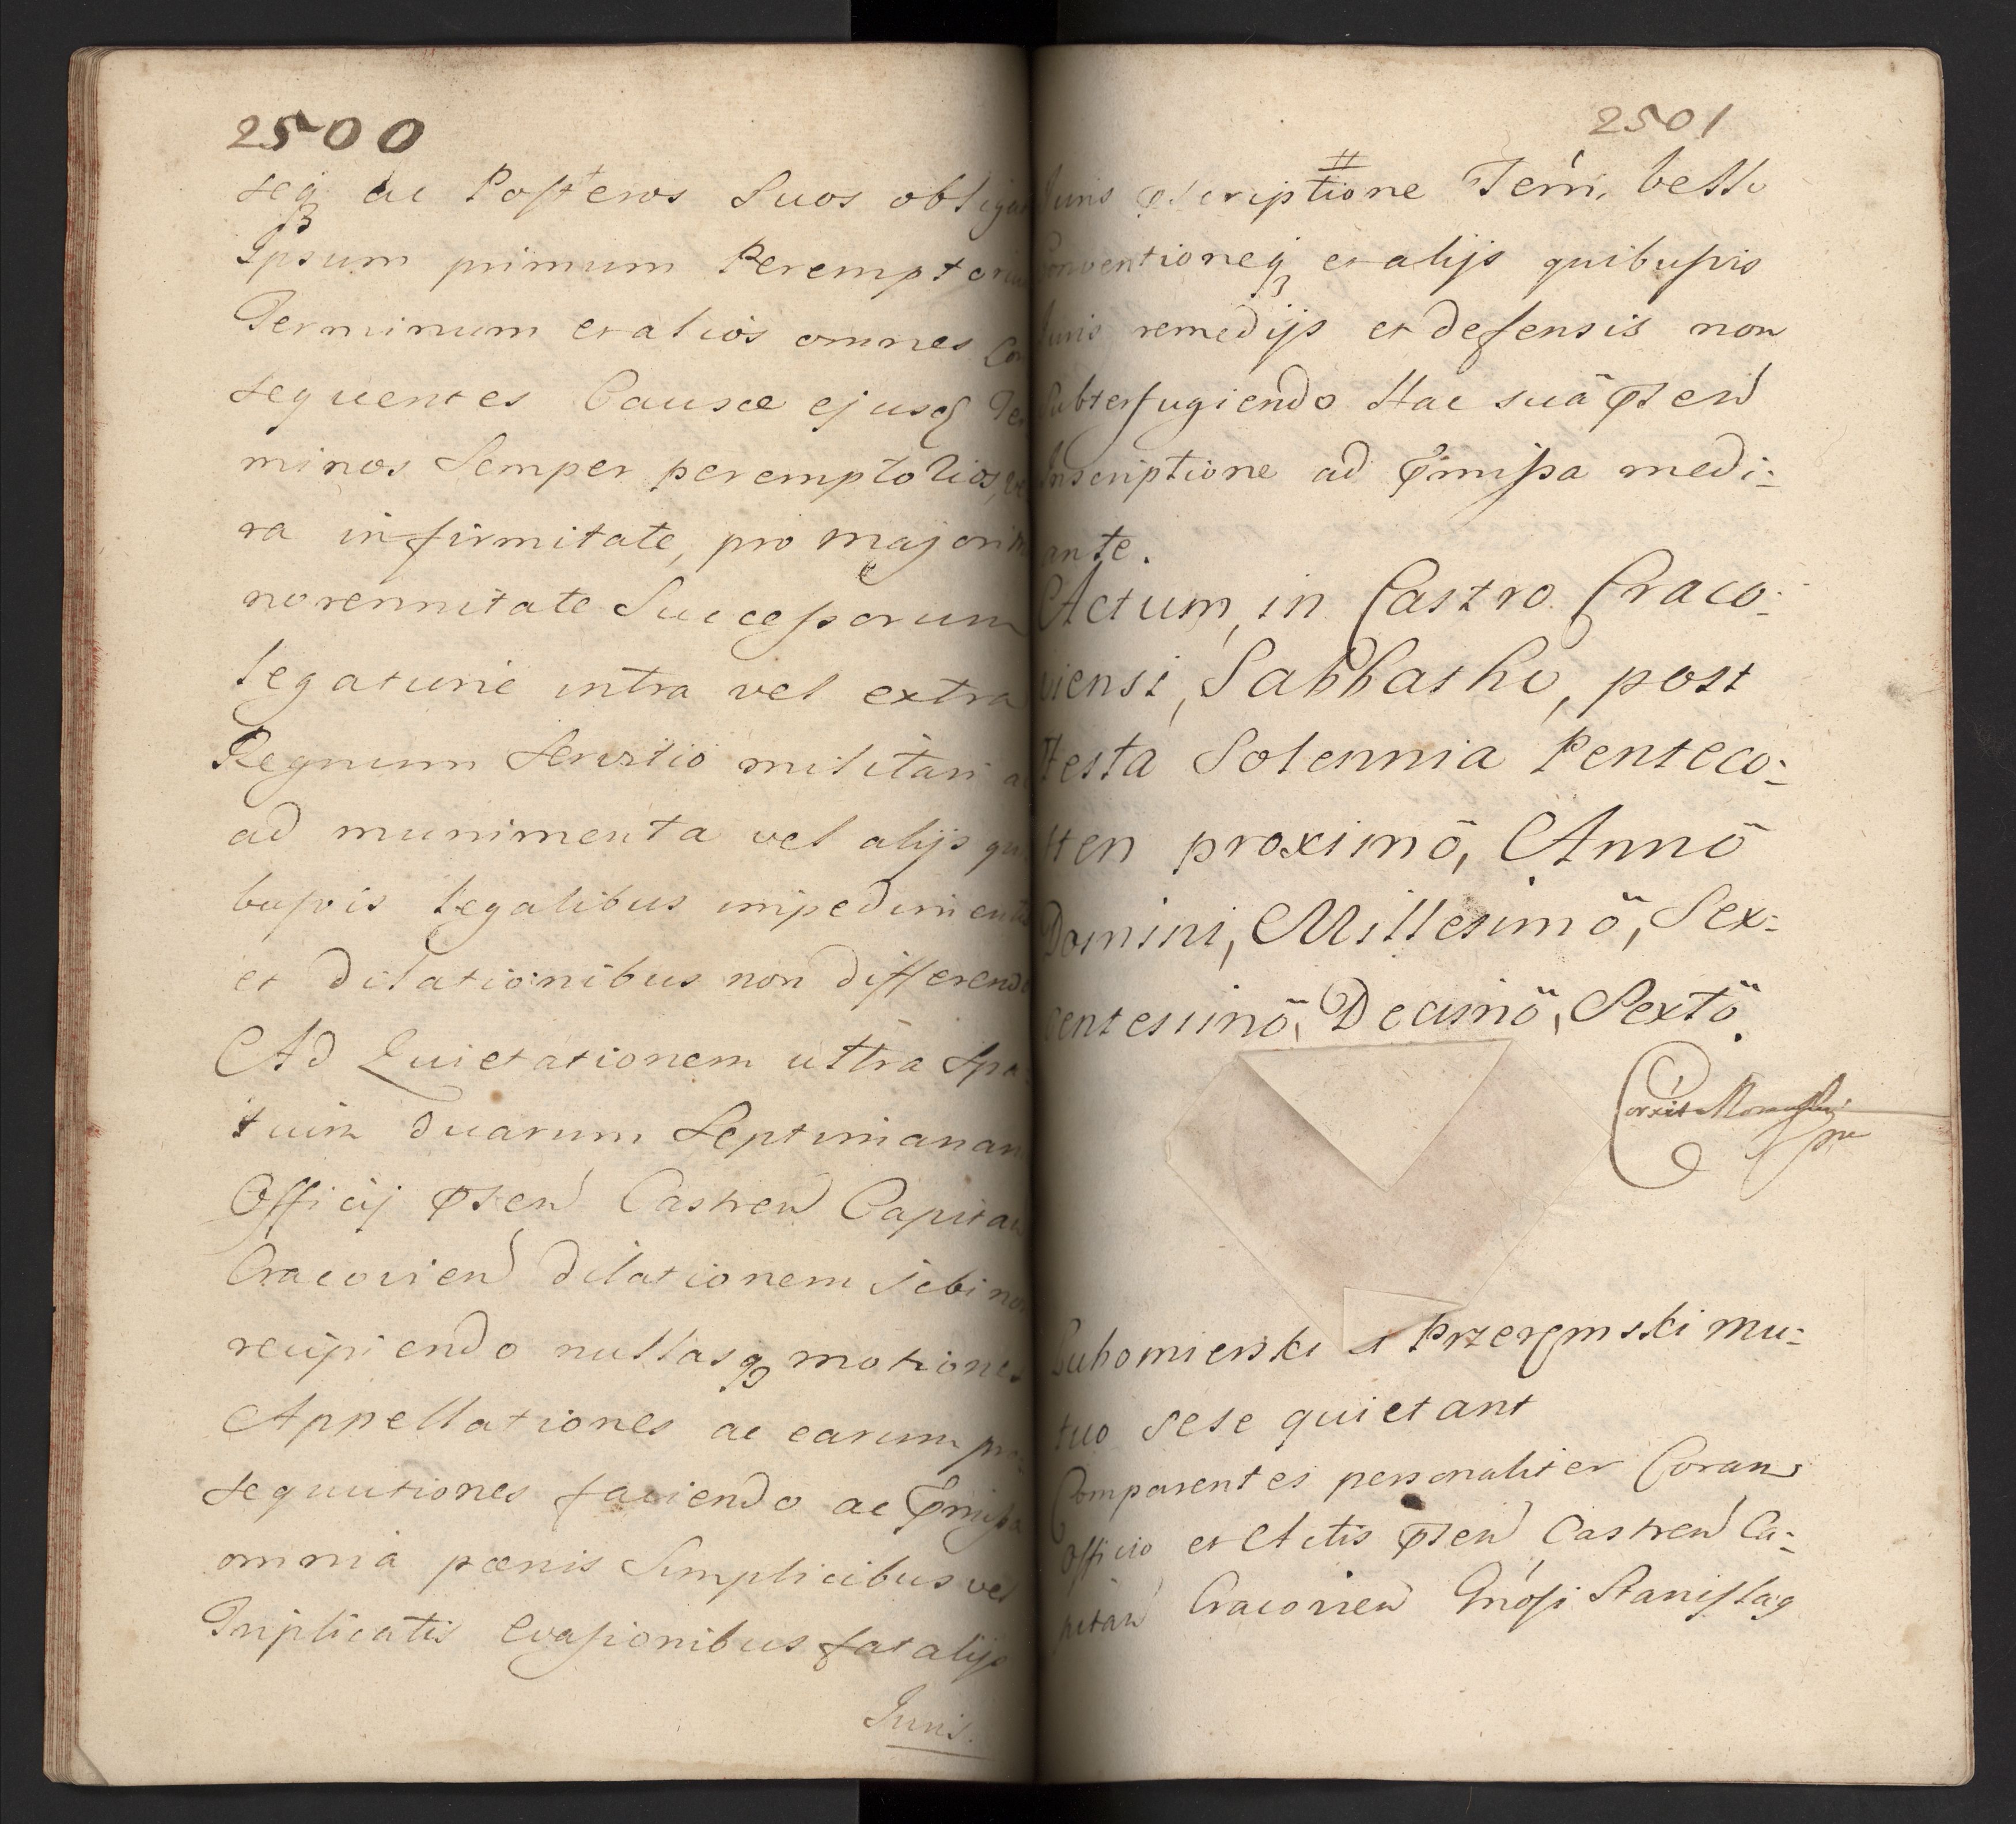 2500
seq3 ac Posteros Suos obligat
Ipsum primum Peremptorium
Terminum et alios omnes Con
sequentes Causæ ejusq Ter
minos Semper peremptorios, ve
ra infirmitate, pro majori
norennitate Successorum
legatione intra vel extra
Regnum Servitio militari ac
ad munimenta vel alijs qui
busvis legalibus impedimentis
et dilationibus non differendo
Ad Quietationem ultra Spa
tium duarum Septimanarum
Officij pñseñ Castreñ Capitañ
Cracovieñ dilationem sibi non
recipiendo nullasq3 motiones
Appellationes ac earum pro
sequutiones faciendo ac pmissa
omnia pœnis Simplicibus vel
Triplicatis evasionibus fatalijs
Juris.
2501
#
Juris pscriptione Termi, bello
Conventioneq3 et alijs quibusvis
Juris remedijs et defensis non
Subterfugiendo Hac suâ pñseñ
Inscriptione ad pmissa medi:
ante.
Actum, in Castro Craco:
viensi, Sabbatho, post
Festa Solennia Penteco:
sten proximō, Annō
Domini, Millesimō, Sex:
centesimō, Decimō, Sextō.
Lubomierski a Przerępski mu:
tuo sese quietant
Comparentes personaliter Coram
Officio et Actis pñseñ Castreñ Ca:
pitañ Cracovieñ Gnosi Stanislaq